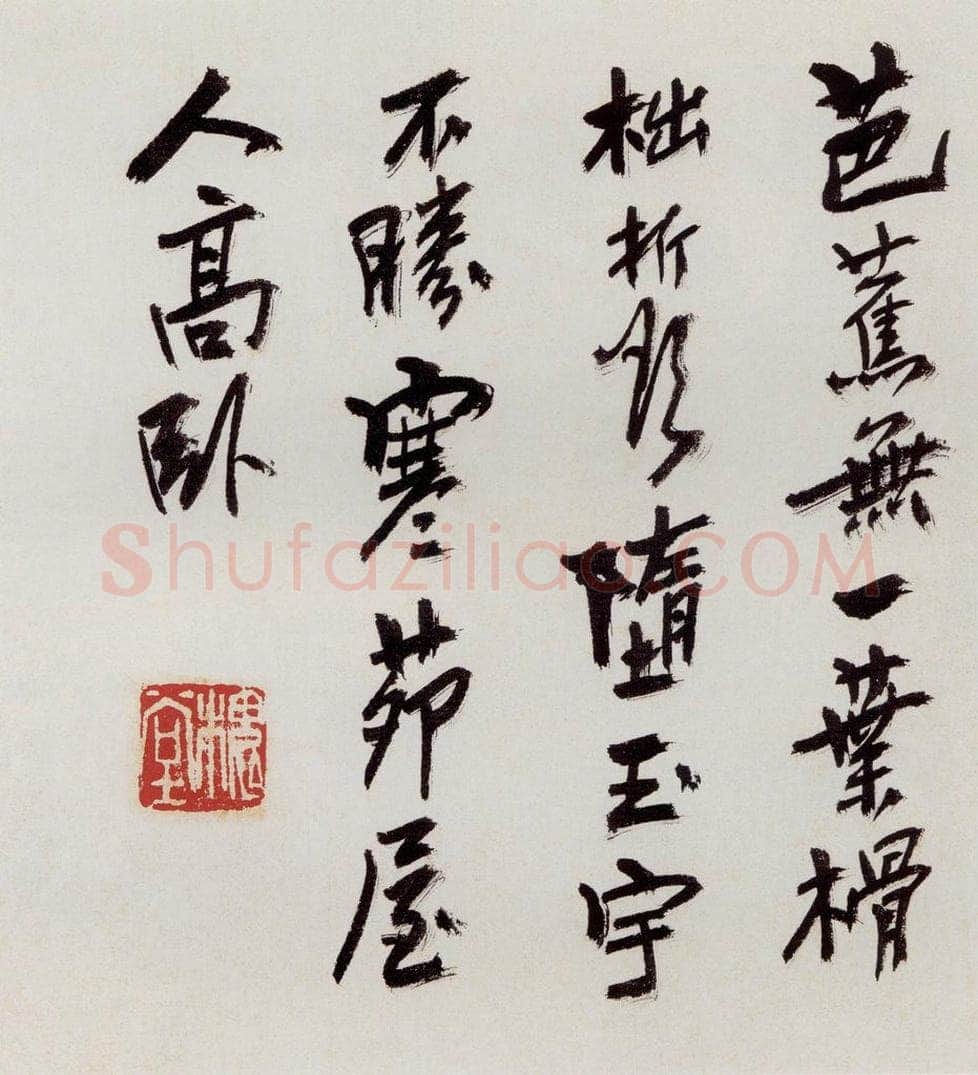 芭蕉無一葉榾
柮折頻墮玉宇
不勝寒茆屋
人高卧
槐堂
Shufaziliao.COM